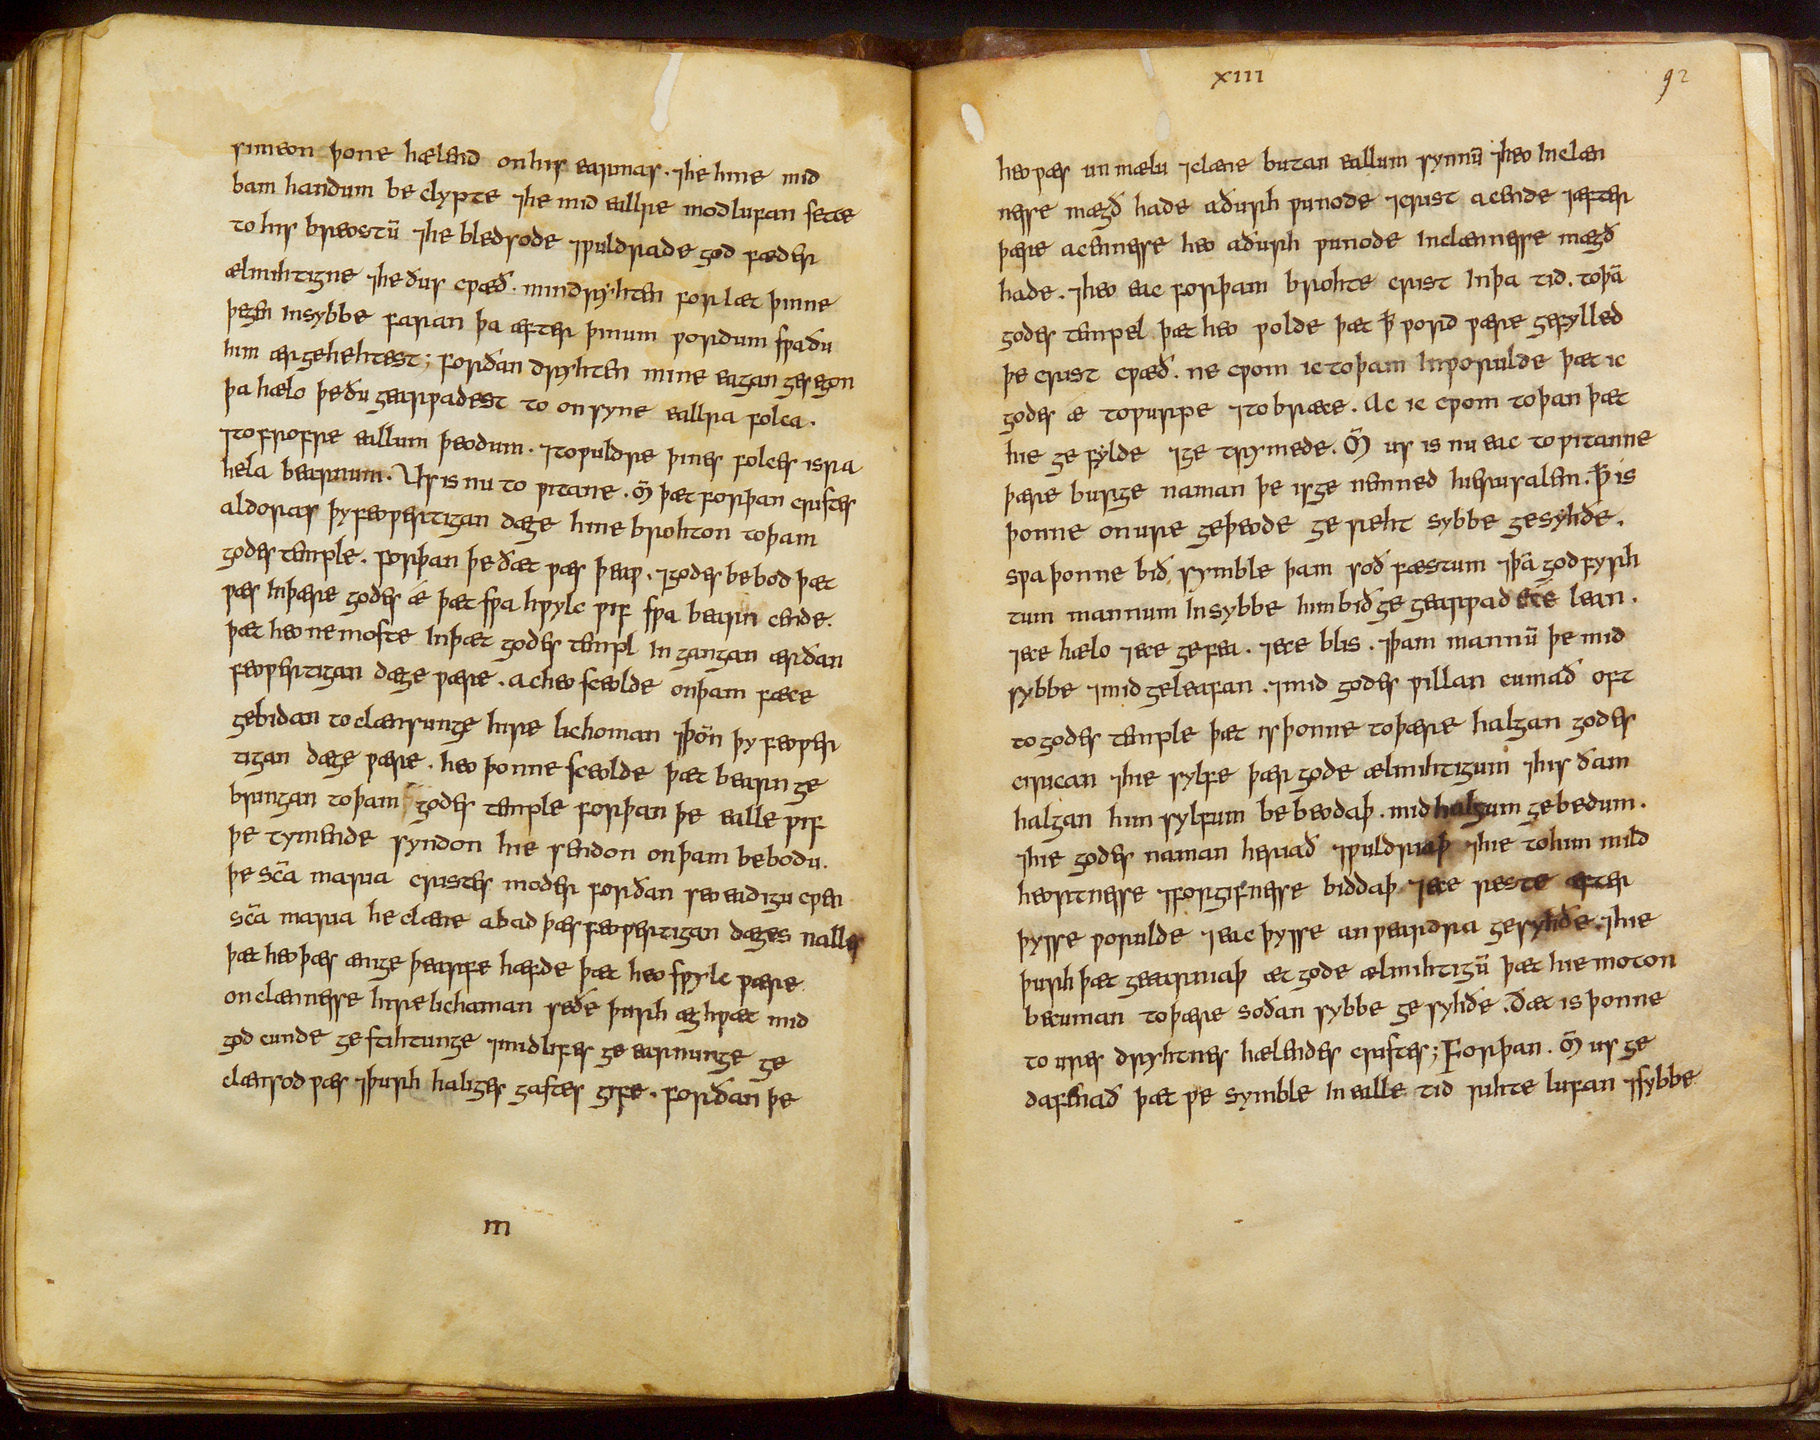 simeon þone hælend on his earmas · ⁊ he hine mid
bam handum be clypte ⁊ he mid eallre modlufan sette
to his breostū ⁊ he bledsode ⁊ ƿuldrade god fæder
ælmihtigne ⁊ he ðus cƿæð · min dryhten for læt þinne
þegen in sybbe faran þa æfter þinum ƿordum sƿa ðu
him ær gehehtest ; forðan dryhten mine eagan gesegon
þa hælo þe ðu gearƿadest to onsyne eallra folca ·
⁊ to frofre eallum þeodum · ⁊ to ƿuldre þines folces isra
hela bearnum · Us is nu to ƿitane · M̄ þæt forþan cristes
aldoras þy feoƿertigan dæge hine brohton to þam
godes temple · forþan þe ðæt ƿæs þeaƿ · ⁊ godes bebod þæt
ƿæs in þære godes ǽ þæt sƿa hƿylc ƿif sƿa bearn cende ·
þæt heo ne moste in þæt godes templ in gangan ær ðan
feoƿertigan dæge ƿære · ac heo sceolde on þam fæce
gebidan to clænsunge hire lichoman ⁊ þōn þy feoƿer
tigan dæge ƿære · heo þonne sceolde þæt bearn ge
bringan to þam godes temple forþan þe ealle ƿif
þe tymende syndon hie sendon on þam bebodu ·
þe sc̄a maria cristes moder forðan seo eadigu cƿen
sc̄a maria he clæne abad þæs feoƿertigan dæges nalles
þæt heo þæs ænge þearfe hæfde þæt heo sƿylc ƿære
on clænnesse hire lichaman seðe þurh æghƿæt mid
god cunde ge stihtunge ⁊ mid lifes ge earnunge ge
clænsod ƿæs ⁊ þurh haliges gastes gife · forðan þe
m
xiii
92
heo ƿæs un mælu ⁊ clæne butan eallum synnū ⁊ heo in clæn
nesse mægð hade aðurh ƿunode ⁊ crist acende ⁊ æfter
þære acennesse heo aðurh ƿunode in clænnesse mægð
hade · ⁊ heo eac forþam brohte crist in þa tid · to þā
godes tempel þæt heo ƿolde þæt ꝥ ƿord ƿære gefylled
þe crist cƿæð · ne cƿom ic to þam in ƿorulde þæt ic
godes ǽ toƿurpe ⁊ to bræce · Ac ic cƿom to þan þæt
hie ge fylde ⁊ ge trymede · M̄ us is nu eac to ƿitanne
þære burge naman þe is ge nemned hierusalem · ꝥ is
þonne on ure geþeode ge reht sybbe gesyhðe ·
sƿa þonne bið symble þam soð fæstum ⁊ þā god fyrh
tum mannum in sybbe him bið ge gearƿad ece lean ·
⁊ ece hælo ⁊ ece gefea · ⁊ ece blis · ⁊ þam mannū þe mid
sybbe ⁊ mid geleafan · ⁊ mid godes ƿillan cumað oft
to godes temple þæt is þonne to þære halgan godes
cirican ⁊ hie sylfe þær gode ælmihtigum ⁊ his ðam
halgan him sylfum be beodaþ · mid halgum gebedum ·
⁊ hie godes naman heriað ⁊ ƿuldriaþ ⁊ hie to him mild
heortnesse ⁊ forgifnesse biddaþ ⁊ ece reste æfter
þysse ƿorulde ⁊ eac þysse anƿeardra gesyhðe · ⁊ hie
þurh þæt geearniaþ æt gode ælmihtigū þæt hie moton
becuman to þære soðan sybbe ge syhðe · Ðæt is þonne
to ures dryhtnes hælendes cristes ; Forþan · M̄ us ge
dafenað þæt ƿe symble in ealle tid rihte lufan ⁊ sybbe